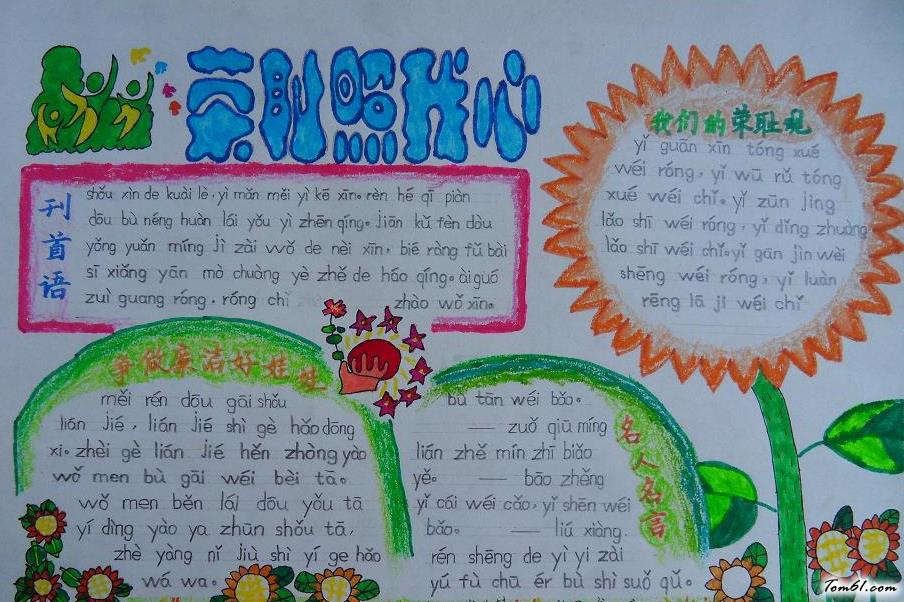 荣耻照我心
刊首语
shǒu xìn de kuài lè, yì mǎn měi yì kē xīn。rèn hé qī piàn
dōu bù néng huàn lái yǒu yì zhēn qíng。jiān kǔ fèn dòu
yǒng yuǎn míng jì zài wǒ de nèi xīn, bié ràng fǔ bài
sī xiǎng yān mò chuàng yè zhě de háo qíng。ài guó
zuì guang róng, róng chǐ zhào wǒ xīn。
我们的荣耻观
yǐ guān xīn tóng xué
wéi róng, yǐ wū rǔ tóng
xué wéi chǐ。yǐ zūn jìng
lǎo shī wéi róng, yǐ dǐng zhuàng
lǎo shī wéi chǐ。yǐ gān jìn wèi
shēng wéi róng, yǐ luàn
rēng lā jī wéi chǐ
争做廉洁好娃娃
měi rén dōu gāi shǒu
lián jié, lián jié shì gè hǎo dōng
xi。zhèi gè lián jié hěn zhòng yào
wǒ men bù gāi wéi bèi tā。
wǒ men běn lái dōu yǒu tā
yí dìng yào ya zhūn shǒu tā,
zhè yàng nǐ jiù shì yí ge hǎo
wá wa。
名人名言
bù tān wéi bǎo。
—— zuǒ qiū míng
lián zhě mín zhī biǎo
yě。 —— bāo zhěng
yǐ cái wéi cǎo, yǐ shēn wéi
bǎo。 —— liú xiàng.
rén shēng de yì yi zài
yú fù chū ér bù shì suǒ qǔ。
Tom61.com